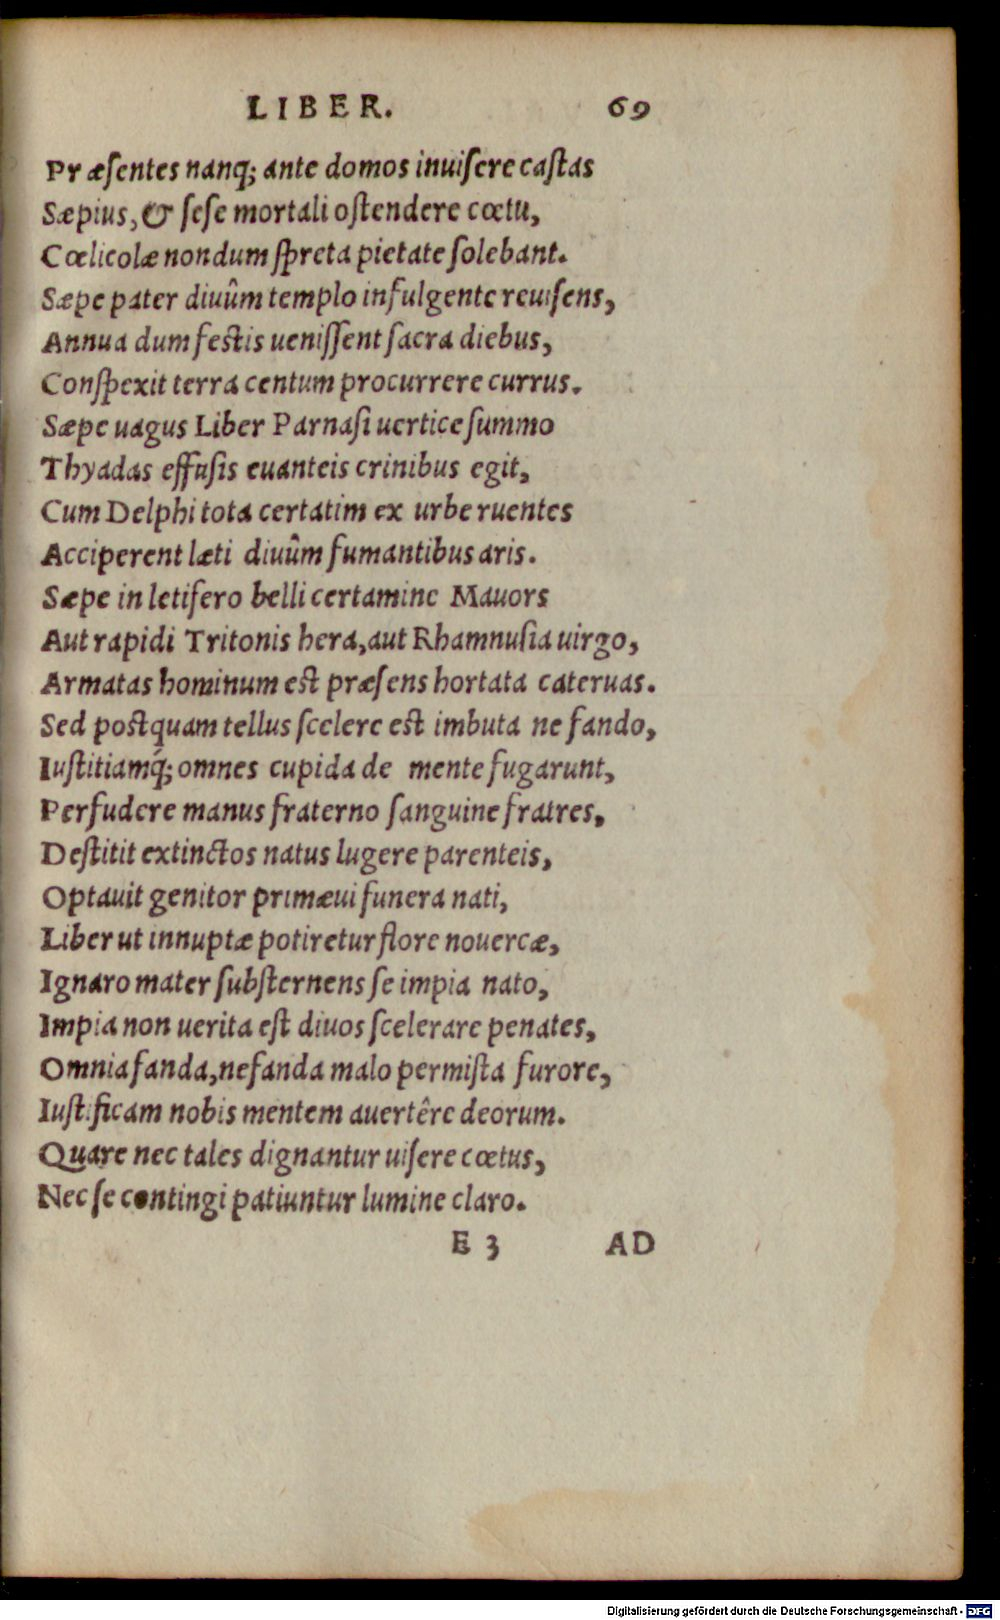 LIBER. 69
Præſentes nanq; ante domos inuiſere caſtas
Sæpius, & ſeſe mortali oſtendere cœtu,
Cœlicolæ nondum ſpreta pietate ſolebant.
Sæpe pater diuûm templo in fulgente reuiſens,
Annua dum feſtis ueniſſent ſacra diebus,
Conſpexit terra centum procurrere currus.
Sæpe uagus Liber Parnaſi uertice ſummo
Thyadas effuſis euanteis crinibus egit,
Cum Delphi tota certatim ex urbe ruentes
Acciperent læti diuûm fumantibus aris.
Sæpe in letifero belli certamine Mauors
Aut rapidi Tritonis hera, aut Rhamnuſia uirgo,
Armatas hominum eſt præſens hortata cateruas.
Sed poſtquam tellus ſcelere eſt imbuta nefando,
Iuſtitiamq́; omnes cupida de mente fugarunt,
Perfudere manus fraterno ſanguine fratres,
Deſtitit extinctos natus lugere parenteis,
Optauit genitor primæui funera nati,
Liber ut innuptæ potiretur flore nouercæ,
Ignaro mater ſubſternens ſe impia nato,
Impia non uerita eſt diuos ſcelerare penates,
Omnia fanda, nefanda malo permiſta furore,
Iuſtificam nobis mentem auertêre deorum.
Quare nec tales dignantur uiſere cœtus,
Nec ſe contingi patiuntur lumine claro.
E 3 AD
Digitalisierung gefördert durch die Deutsche Forschungsgemeinschaft - DFG